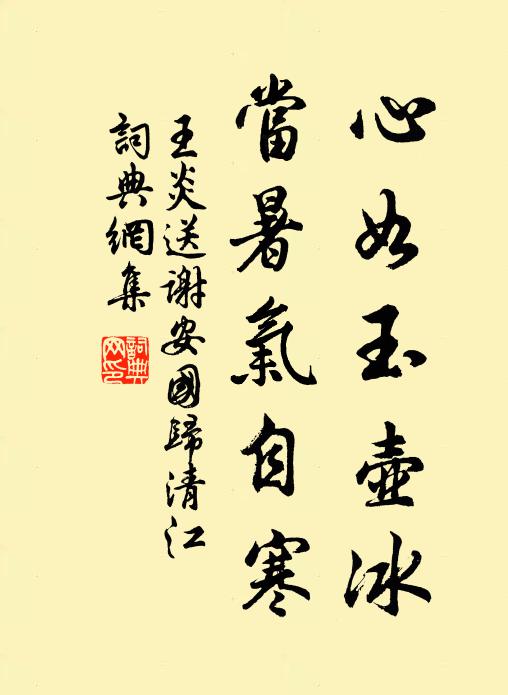 心如玉壺冰
當暑氣自寒
王炎送謝安國歸清江
詞典網集
詞典網印